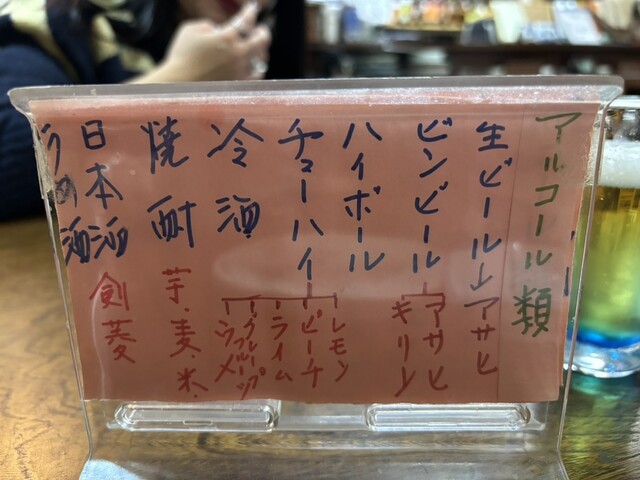 アルコール類
生ビール アサヒ
ビンビール アサヒ
キリン
ハイボール
チューハイ レモン
ピーチ
ライム
グレープフルーツ
ウメ
冷酒
焼酎 芋・麦・米・
日本酒 剣菱
うめ酒